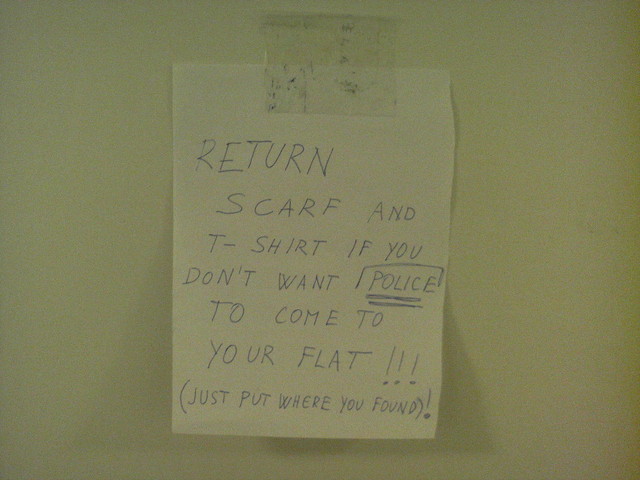 RETURN
SCARF AND
T-SHIRT IF YOU
DON'T WANT POLICE
TO COME TO
YOUR FLAT !!!
(JUST PUT WHERE YOU FOUND)!